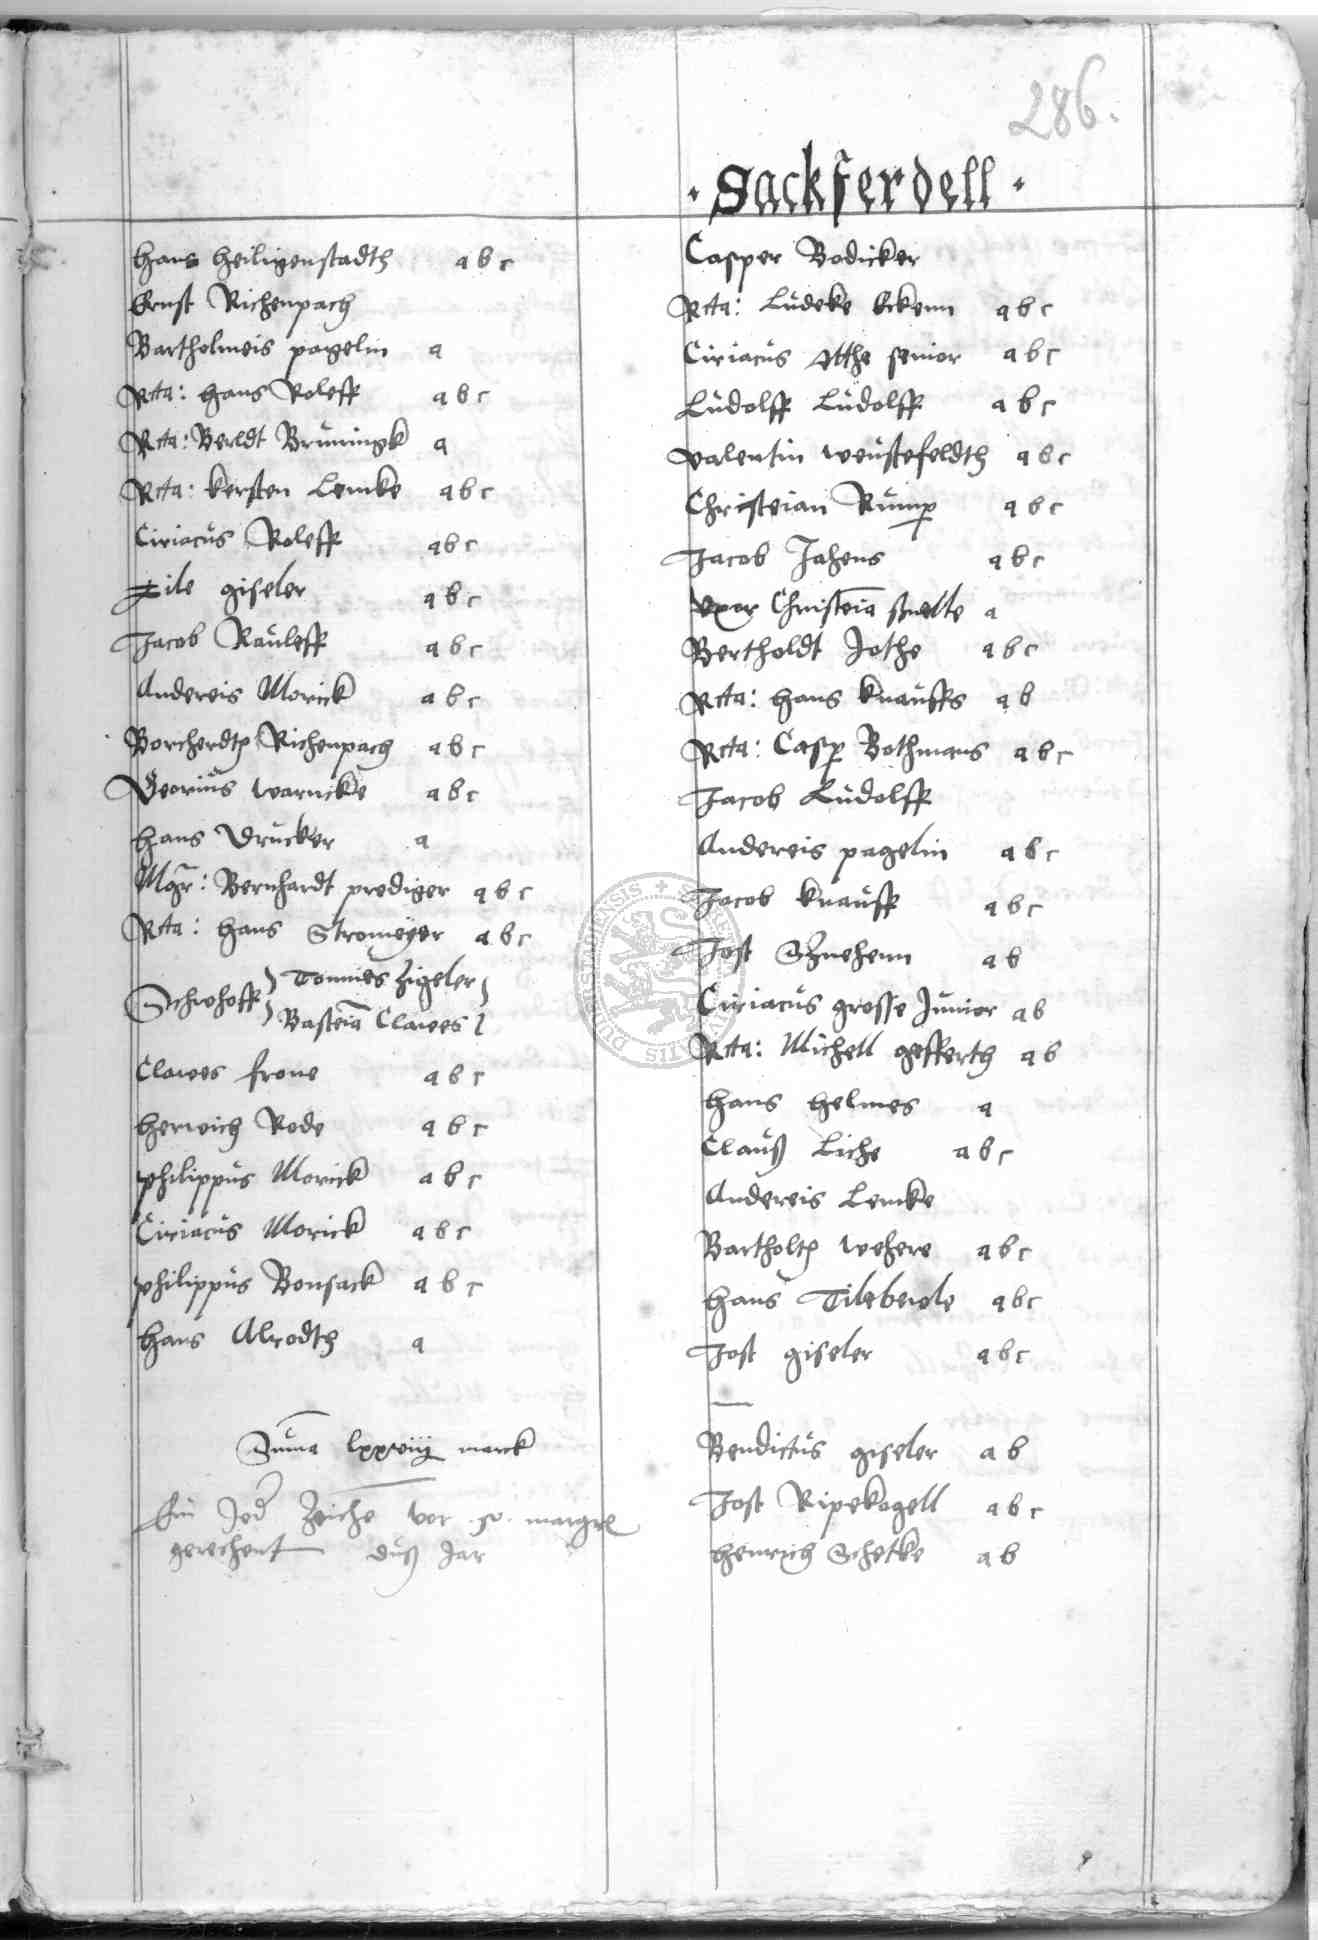 286.
Hans Heiligenstadth a b c
Ernst Richenpach
Bartholmeis pagelin a
Rcta: Hans Roleff a b c
Rcta: Berldt Brüningk a
Rcta: Kersten Lemke a b c
Ciriacus Roleff a b c
Zile giseler a b c
Jacob Rauleff a b c
Andereis Morick a b c
Borcherdth Richenpach a b c
Georius Warncke a b c
Hans Drucker a
Mgr: Bernhardt prediger a b c
Rcta: Hans Stromeyer a b c
Schwhoff Tonnies Zigeler
Basteia Clawes
Clawes frone a b c
Herwich Rode a b c
philippus Morick a b c
Ciriacus Morick a b c
philippus Bonsack a b c
Hans Alrodth a
Suma lxxviij marck
Ein Jed Zeiche vor margk
gerechent duß Jar
· Sackferdell ·
Casper Bodicker
Rcta: Ludeke Ekenn a b c
Ciriacus Otthe senior a b c
Ludolff Ludolff a b c
valentin weustefeldth a b c
Christeian Rump a b c
Jacob Jahens a b c
Uxor Christeia snelle a
Bertholdt Jothe a b c
Rcta: Hans Knauffs a b
Rcta: Casp Bothmans a b c
Jacob Ludolff
Andereis pagelin a b c
Jacob Knauff a b c
Jost a b
Ciriacus grosse Junior a b
Rcta: Michell gefferth a b
Hans Helmes a
Clauß Liche a b c
Andereis Lemke
Bartholth wehere a b c
Hans Tilebeiole a b c
Jost giseler a b c
Bendictus giseler a b
Jost Ripekogell a b c
Henrich Schetke a b